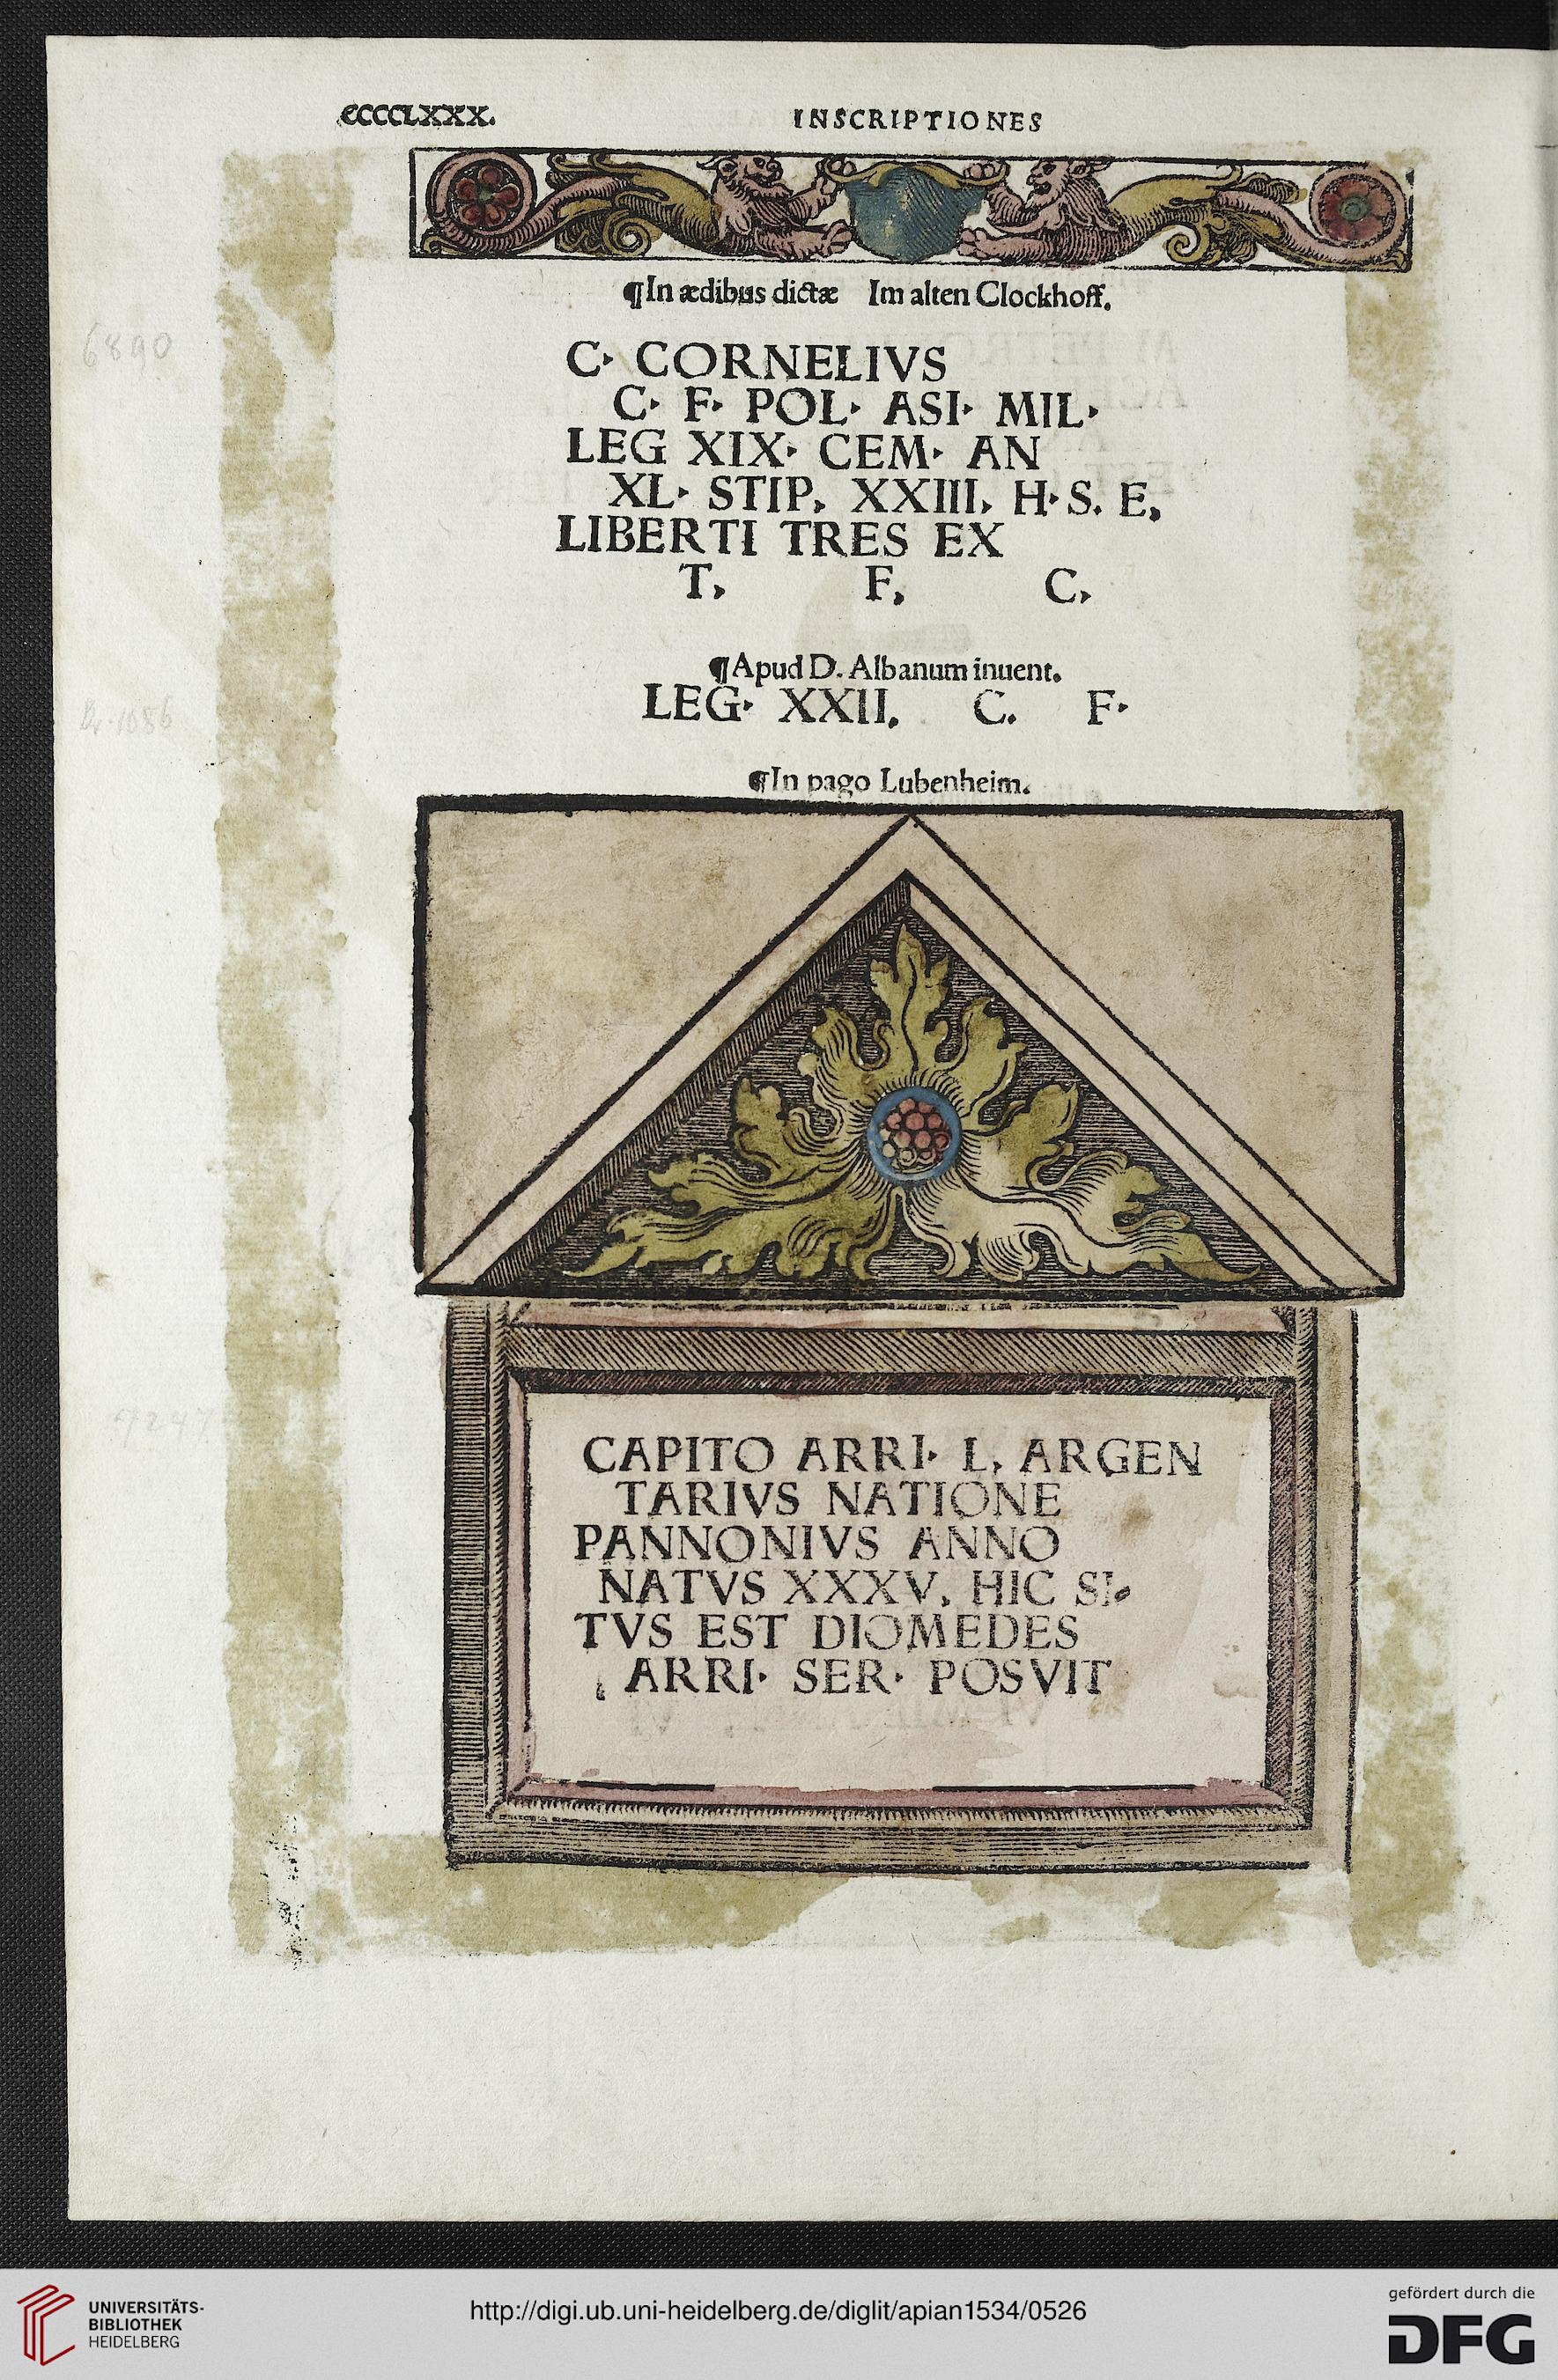 CCCCLXXX.
INSCRIPTIONES
¶In ædibus dictæ Im alten Clockhoff.
C· CORNELIVS
C· F· POL· ASI· MIL·
LEG XIX· CEM· AN
XL· STIP, XXIII, H·S. E,
LIBERTI TRES EX
T, F, C,
¶Apud D. Albanum inuent.
LEG· XXII. C. F·
¶In pago Lubenheim.
CAPITO ARRI· L, ARGEN
TARIVS NATIONE
PANNONIVS ANNO
NATVS XXXV, HIC SI-
TVS EST DIOMEDES
ARRI· SER· POSVIT
6890
7247
UNIVERSITÄTS-
BIBLIOTHEK
HEIDELBERG
http://digi.ub.uni-heidelberg.de/diglit/apian1534/0526
gefördert durch die
DFG